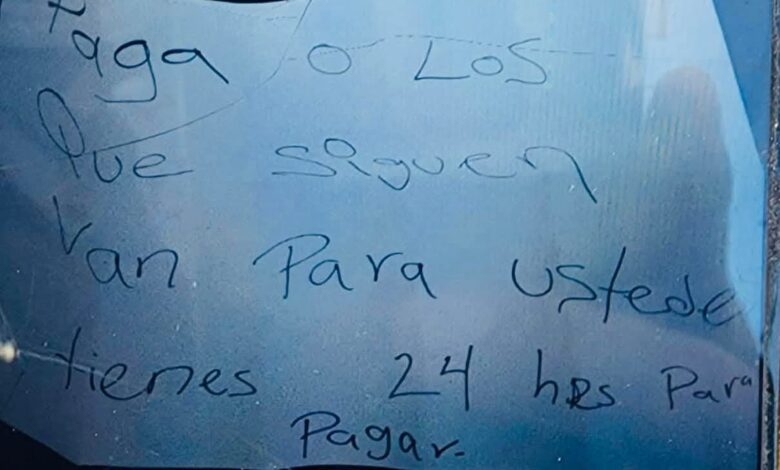 Paga o Los
Que siguen
Van Para ustede
tienes 24 hrs Para
Pagar.